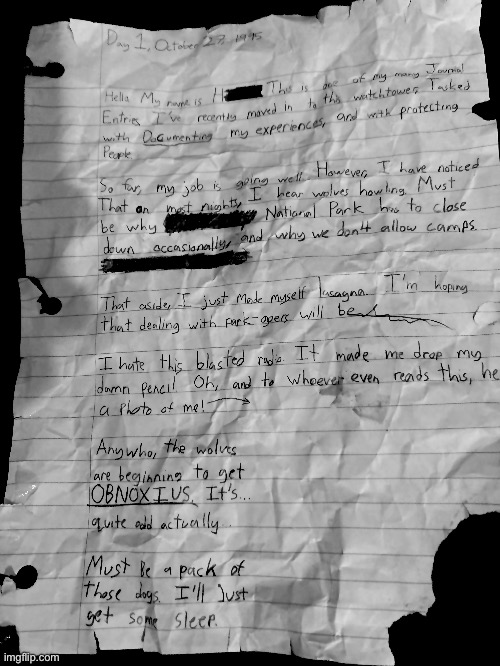 Day 1, October 27, 1995
Hello My name is H This is one of my many Journal
Entries I've recently moved in to this watchtower, Tasked
with Documenting my experiences, and with protecting
People
So far, my job is going well However, I have noticed
That on most nights, I hear wolves howling. Must
be why National Park has to close
down occasionally, and why we don't allow camps.
That aside, I just made myself lasagna. I'm hoping
that dealing with park-goers will be
I hate this blasted radio. It made me drop my
damn pencil! Oh, and to whoever even reads this, he
a photo of me!
Anywho, the wolves
are beginning to get
OBNOXIUS. It's...
quite odd actually..
Must be a pack of
those dogs. I'll Just
get some sleep.
imgflip.com